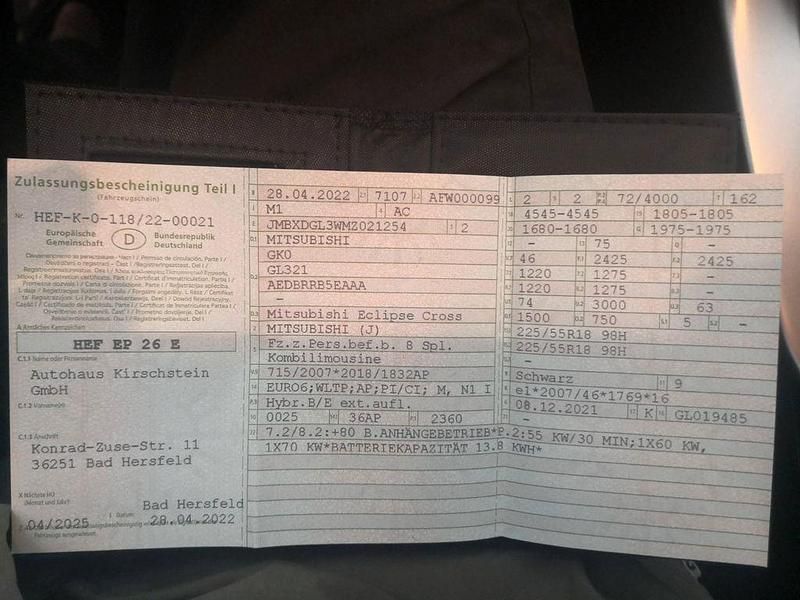 Zulassungsbescheinigung Teil I
(Fahrzeugschein)
Nr. HEF-K-0-118/22-00021
Europäische Gemeinschaft
D
Bundesrepublik Deutschland
A Amtliches Kennzeichen
HEF EP 26 E
C.1.1 Name oder Firmenname
Autohaus Kirschstein
GmbH
C.1.2 Vorname(n)
C.1.3 Anschrift
Konrad-Zuse-Str. 11
36251 Bad Hersfeld
X Nächste HU
(Monat und Jahr)
Bad Hersfeld
I Datum:
04/2025
28.04.2022
B 28.04.2022 7107 AFW000099
M1 AC
JMBXDGL3WMZ021254 2
MITSUBISHI
GK0
GL321
AEDBRRB5EAAA
–
Mitsubishi Eclipse Cross
MITSUBISHI (J)
Fz.z.Pers.bef.b. 8 Spl.
Kombilimousine
715/2007*2018/1832AP
EURO6;WLTP;AP;PI/CI; M, N1 I
Hybr.B/E ext.aufl.
0025 36AP 2360
7.2/8.2:+80 B.ANHÄNGEBETRIEB*P.2:55 KW/30 MIN;1X60 KW,
1X70 KW*BATTERIEKAPAZITÄT 13.8 KWH*
L 2 2 72/4000 T 162
4545-4545 1805-1805
1680-1680 G 1975-1975
– 75 –
46 2425 2425
1220 1275
1220 1275
74 3000 63
1500 750 5 –
225/55R18 98H
225/55R18 98H
Schwarz 9
e1*2007/46*1769*16
08.12.2021 K GL019485